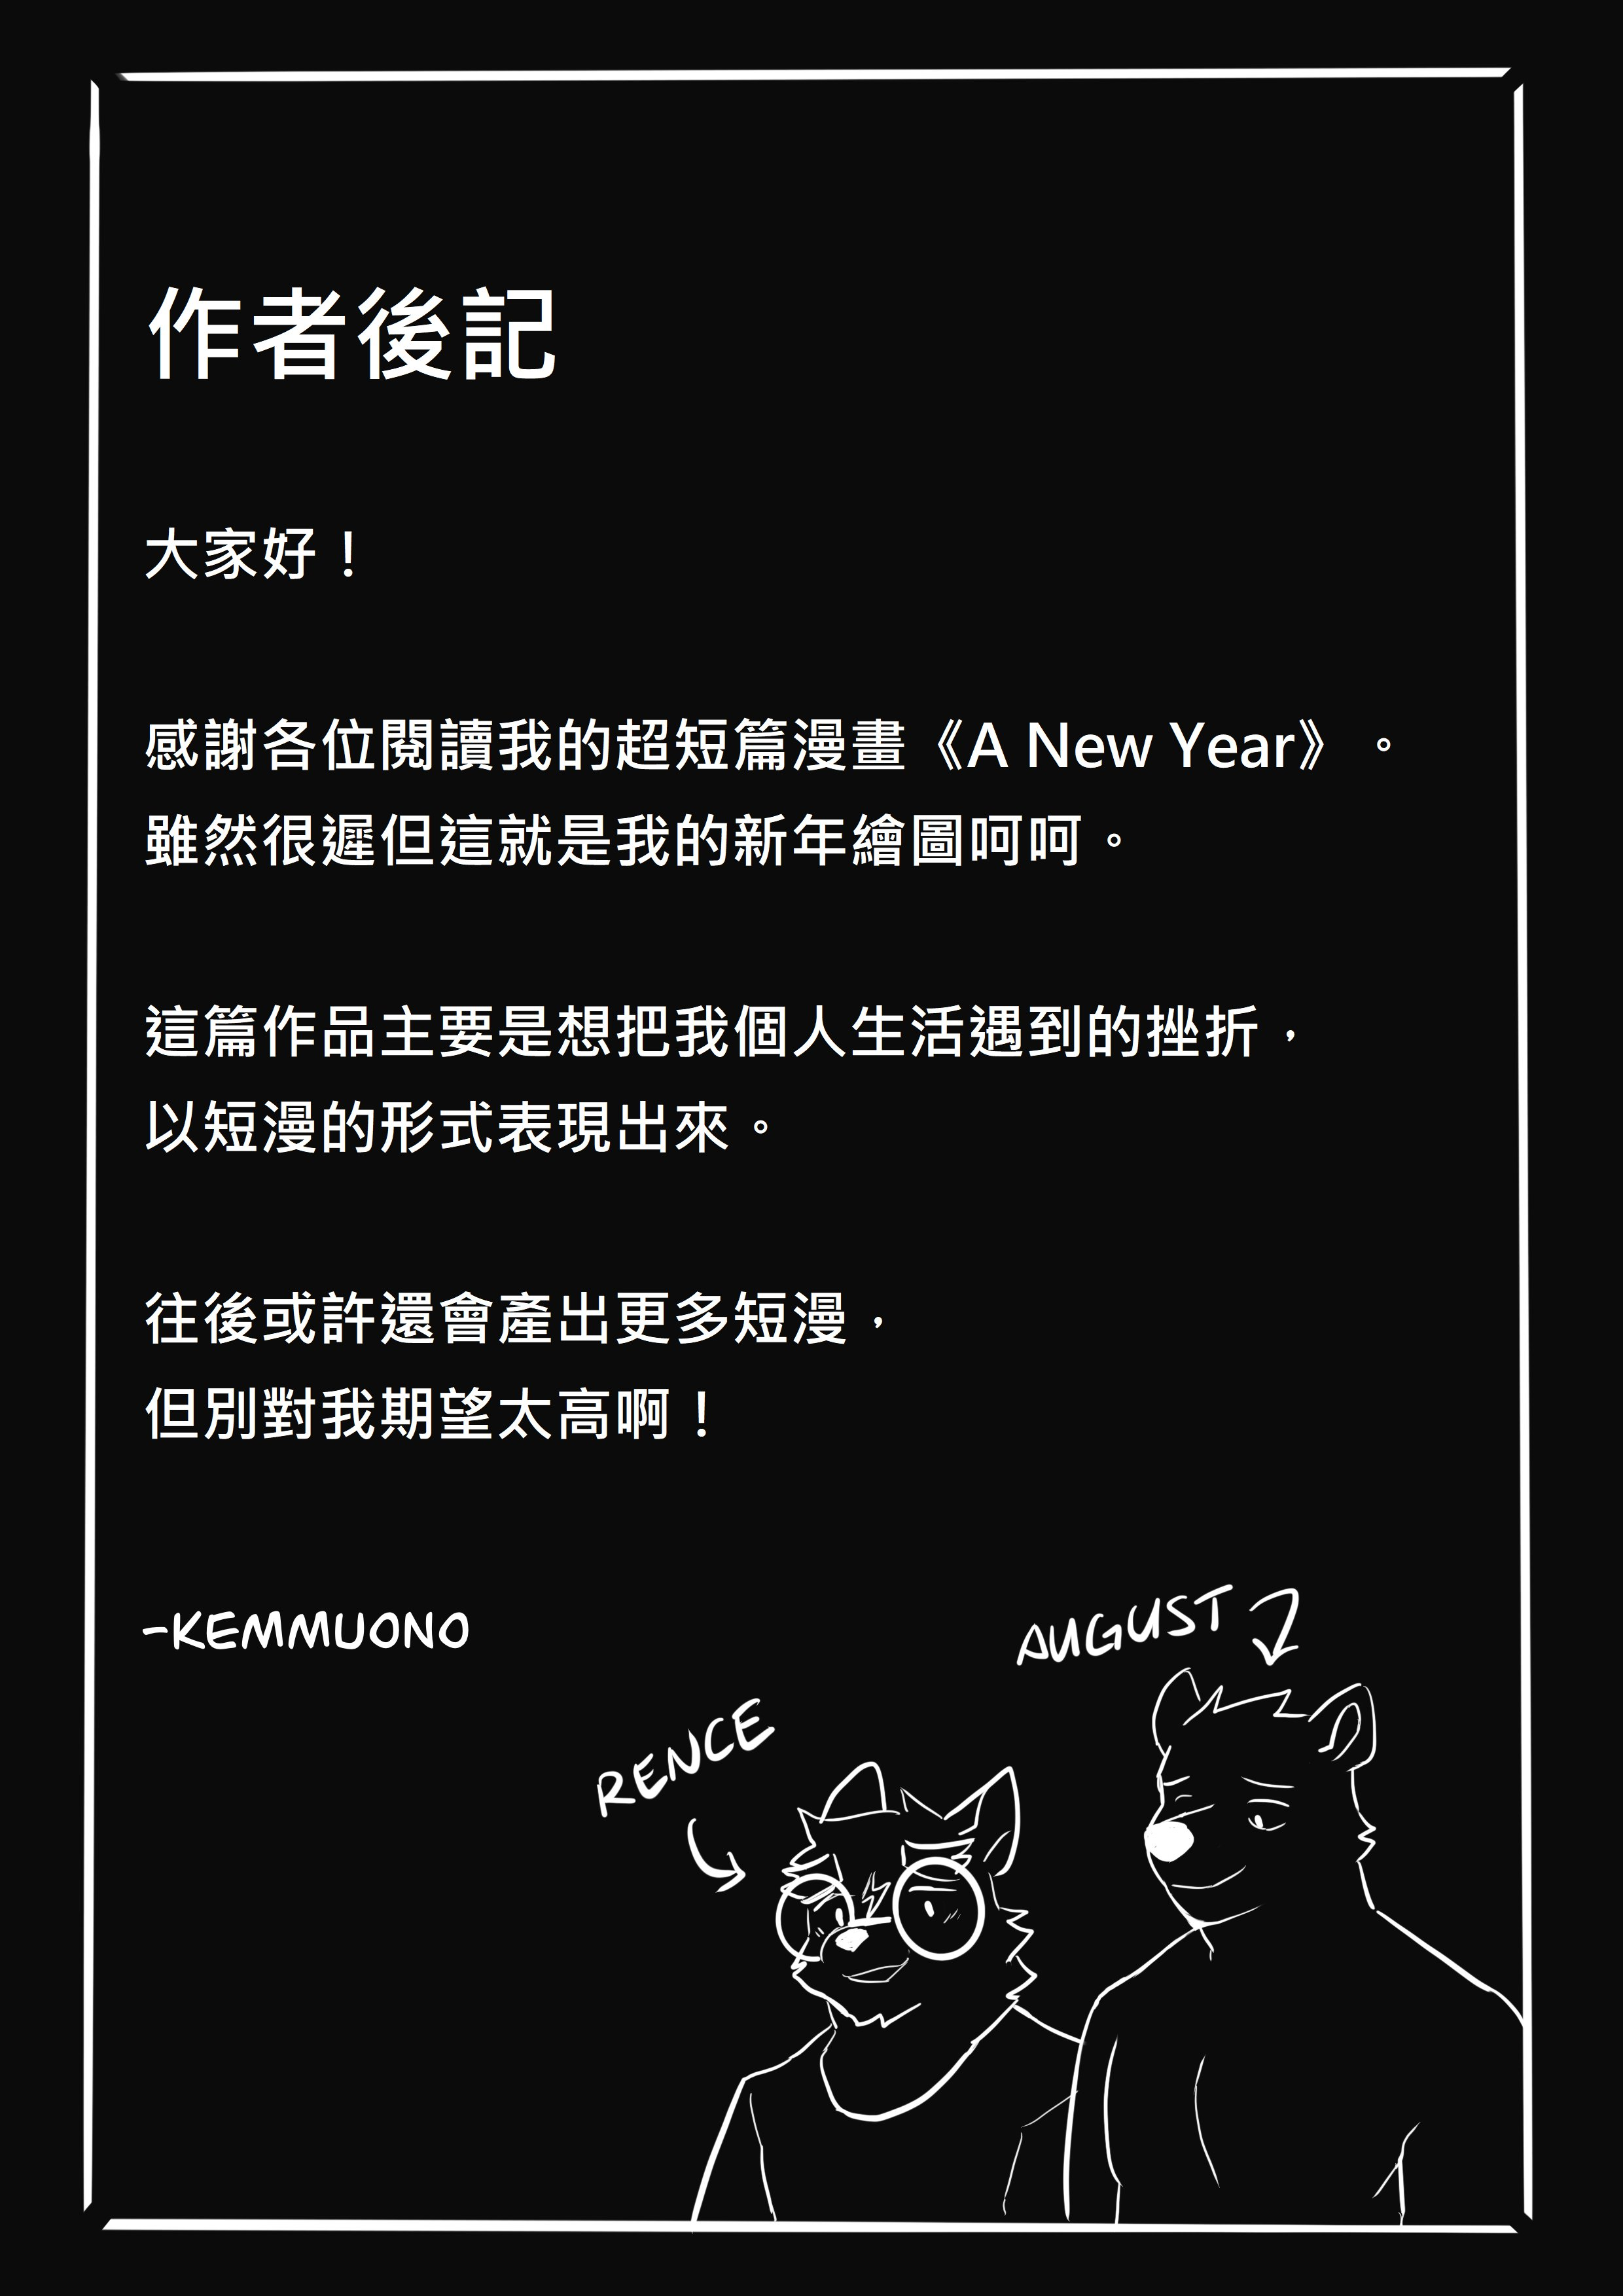 作者後記
大家好！
感謝各位閱讀我的超短篇漫畫《A New Year》。
雖然很遲但這就是我的新年繪圖呵呵。
這篇作品主要是想把我個人生活遇到的挫折，
以短漫的形式表現出來。
往後或許還會產出更多短漫，
但別對我期望太高啊！
-KEMMUONO
AUGUST
RENCE